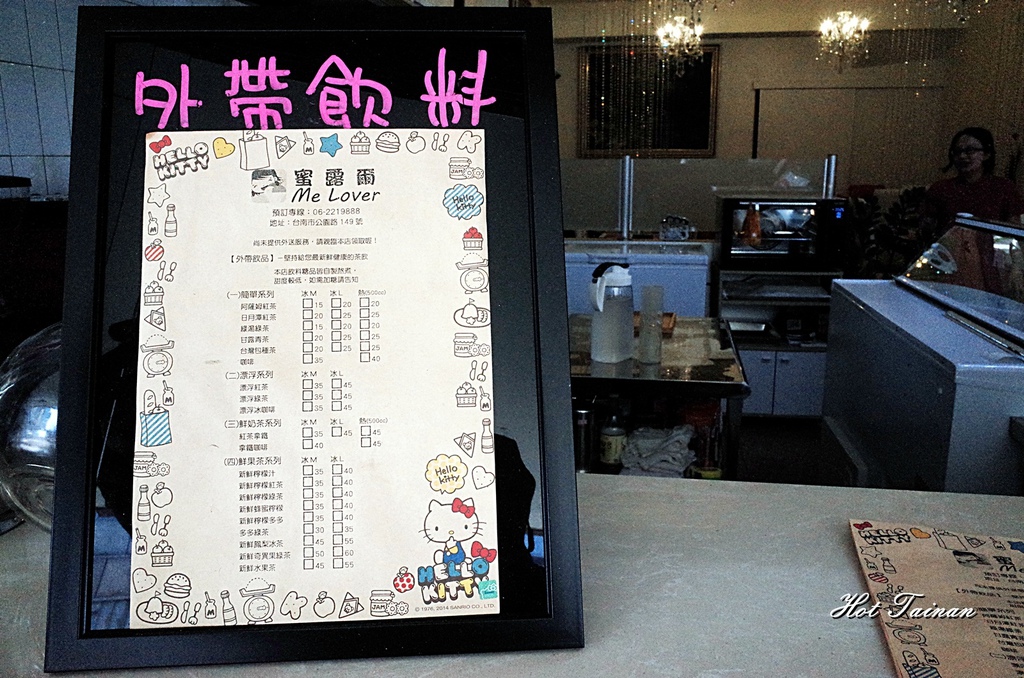 外帶飲料
HELLO KITTY
蜜露爾
Me Lover
Hello Kitty
預訂專線：06-2219888
地址：台南市公園路 149 號
尚未提供外送服務，請親臨本店領取喔！
【外帶飲品】－堅持給您最新鮮健康的茶飲
本店飲料糖品皆自製熬煮，
甜度較低，如需加糖請告知
(一)簡單系列 冰M 冰L 熱(500cc)
阿薩姆紅茶 15 20 20
日月潭紅茶 20 25 25
綠湯綠茶 15 20 25
甘露青茶 20 25 25
台灣包種茶 20 25 25
咖啡 35 40
(二)漂浮系列 冰M 冰L
漂浮紅茶 35 45
漂浮綠茶 35 45
漂浮冰咖啡 35 45
(三)鮮奶茶系列 冰M 冰L 熱(500cc)
紅茶拿鐵 35 45 45
拿鐵咖啡 40 45
(四)鮮果茶系列 冰M 冰L
新鮮檸檬汁 35 40
新鮮檸檬紅茶 35 40
新鮮檸檬綠茶 35 40
新鮮蜂蜜檸檬 35 40
新鮮檸檬多多 35 40
多多綠茶 30 35
新鮮鳳梨冰茶 45 55
新鮮奇異果綠茶 50 60
新鮮水果茶 45 55
Hello Kitty
HELLO KITTY
JAM
JAM
JAM
JAM
© 1976, 2014 SANRIO CO., LTD.
Hot Tainan